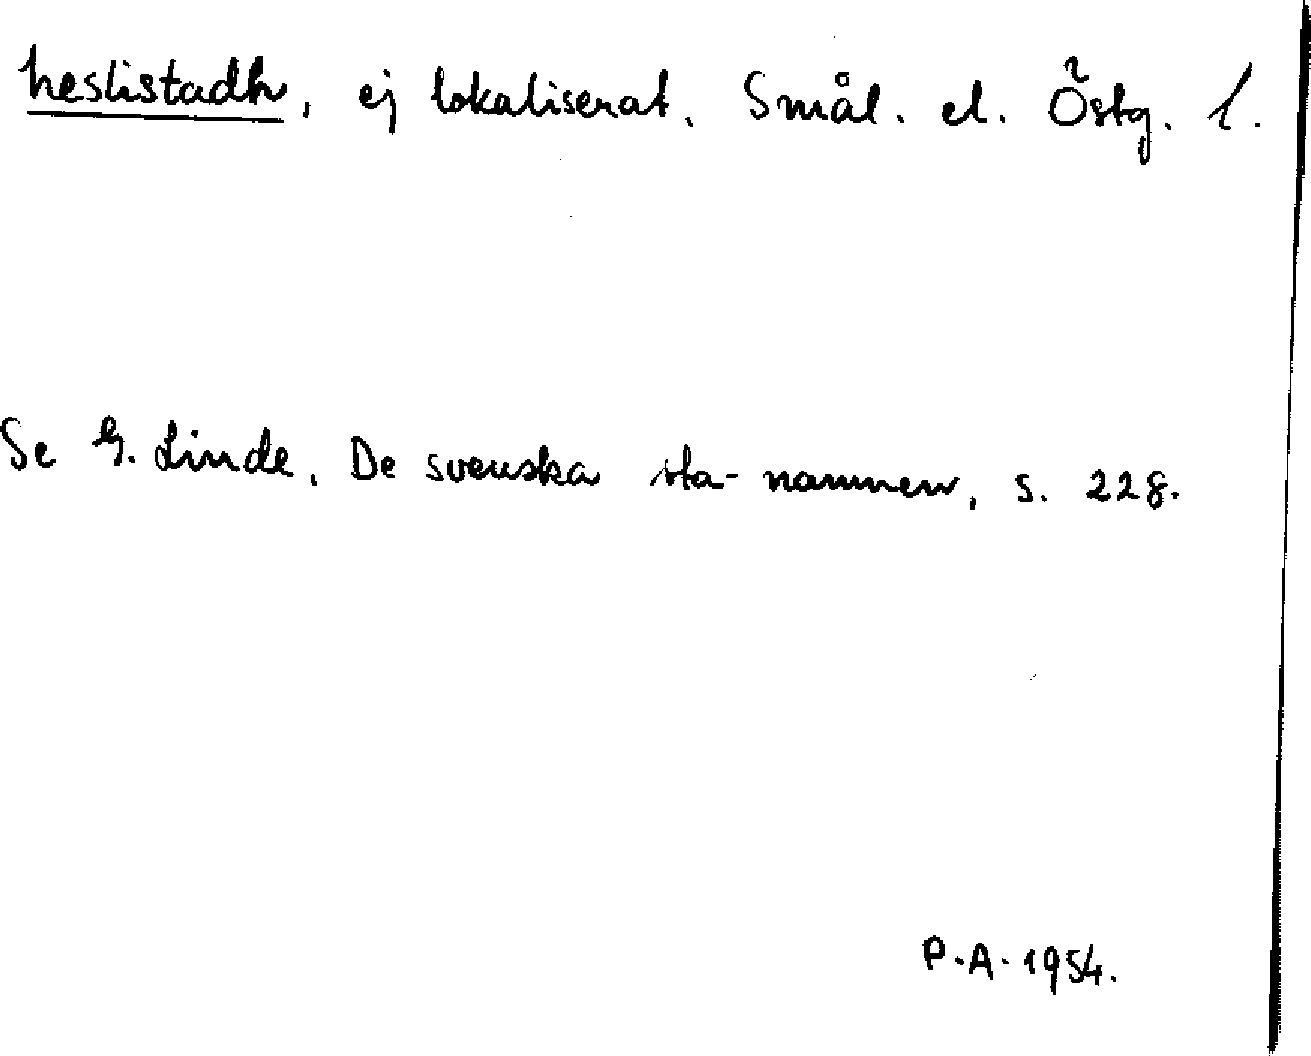 heslistadh, ej lokaliserat. Smål. el. Östg. l.
Se G. Linde, De svenska sta-namnen, s. 228.
P.A. 1954.